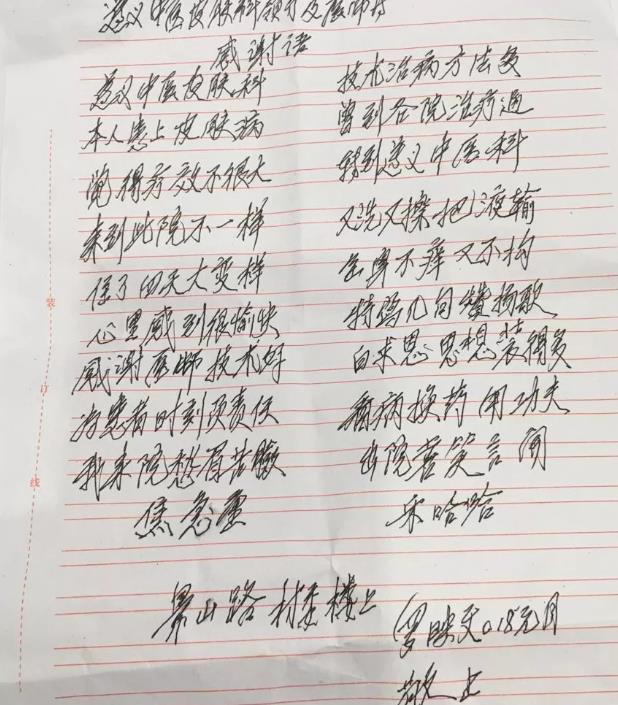 遵义中医皮肤科领导及医师
感谢语
遵义中医皮肤科 技术治病方法多
本人患上皮肤病 曾到各院治疗过
觉得疗效不很大 转到遵义中医科
来到此院不一样 又洗又擦把液输
住了四天大变样 全身不痒又不抅
心里感到很愉快 特写几句赞扬歌
感谢医师技术好 白求恩思想装得多
为患者时刻负责任 看病换药用功夫
我来院愁眉苦脸 出院喜笑言开
焦急重 乐哈哈
山路 楼上
18元月
敬上
装
订
线